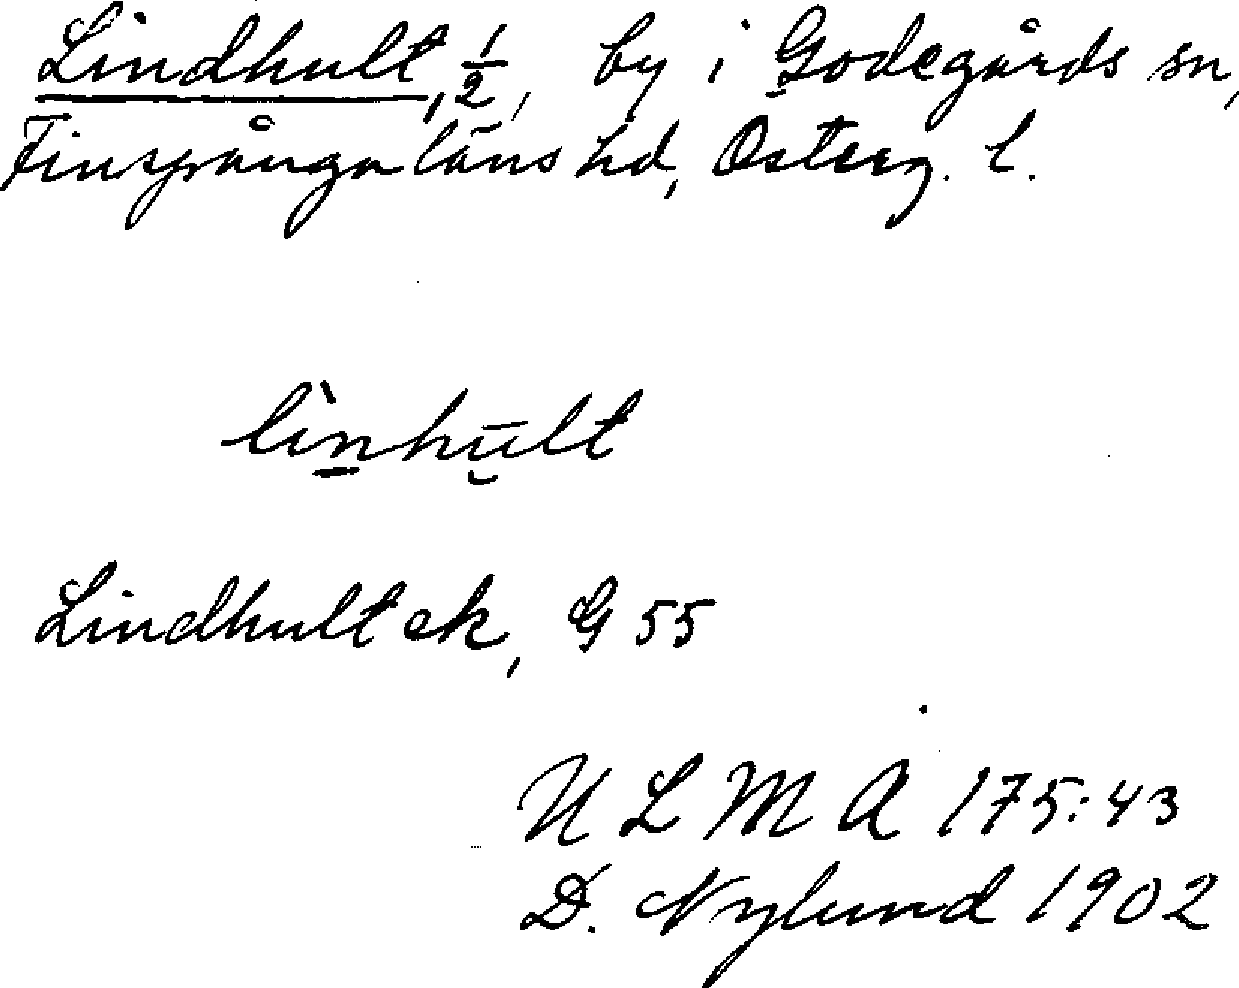 Lindhult, 1/2, by i Godegårds sn,
Finspånga läns hd, Österg. l.
lìnhūlt
Lindhult ek, G 55
U L M A 175:43
D. Nylund 1902